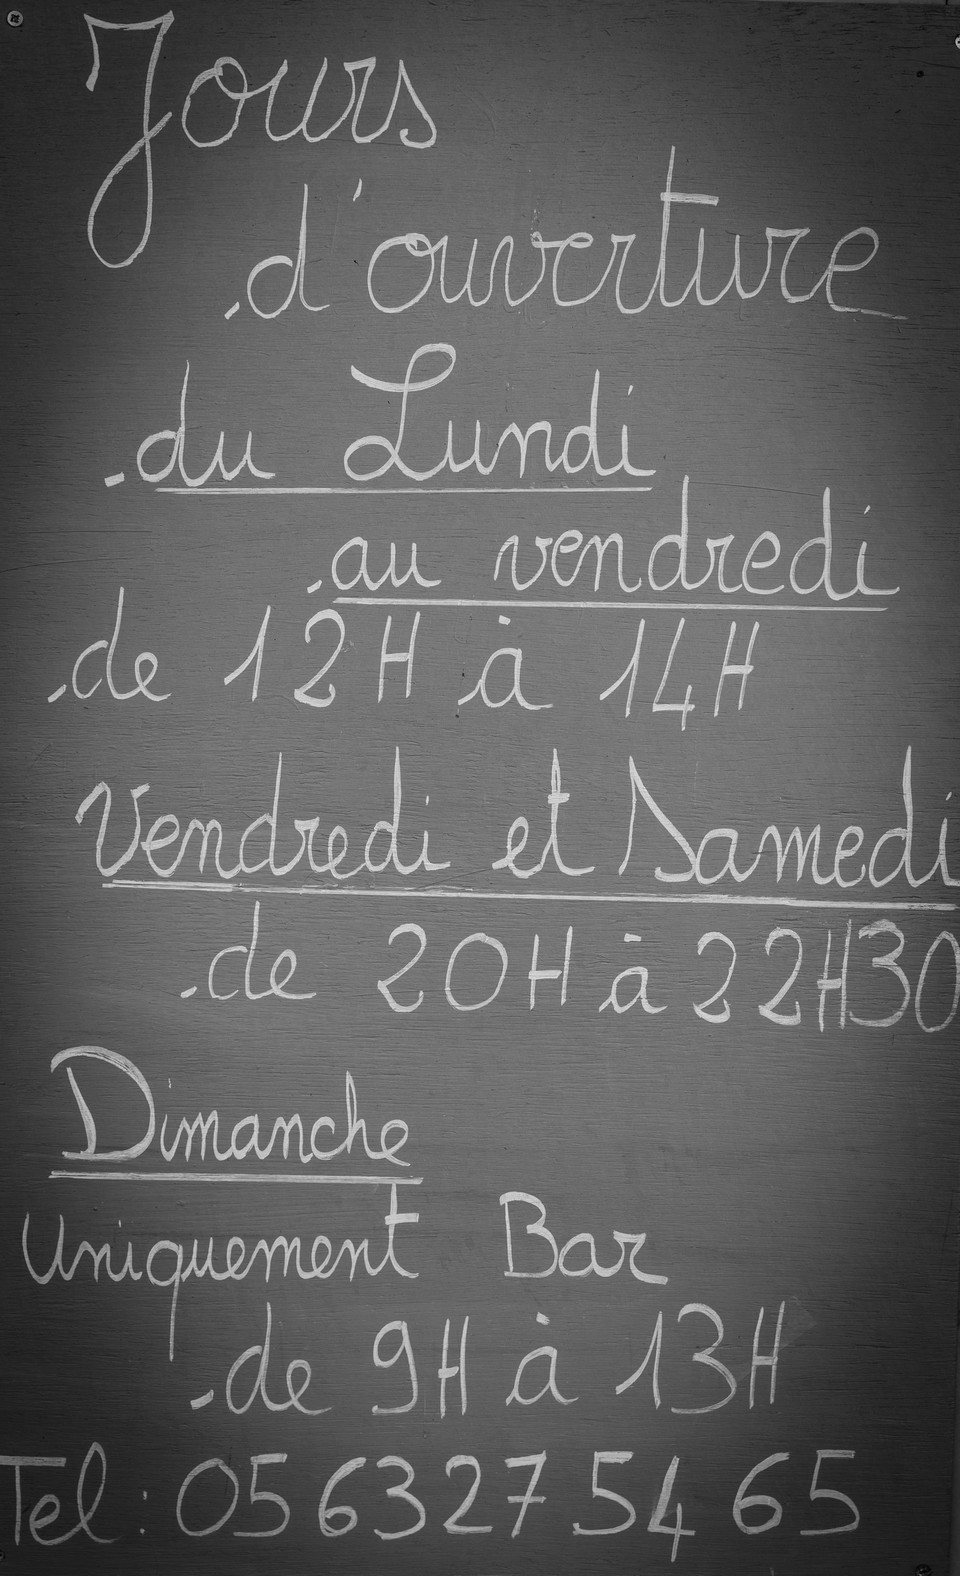 Jours
d'ouverture
du Lundi
au vendredi
de 12H à 14H
Vendredi et Samedi
de 20H à 22H30
Dimanche
Uniquement Bar
de 9H à 13H
Tel : 05 63 27 54 65